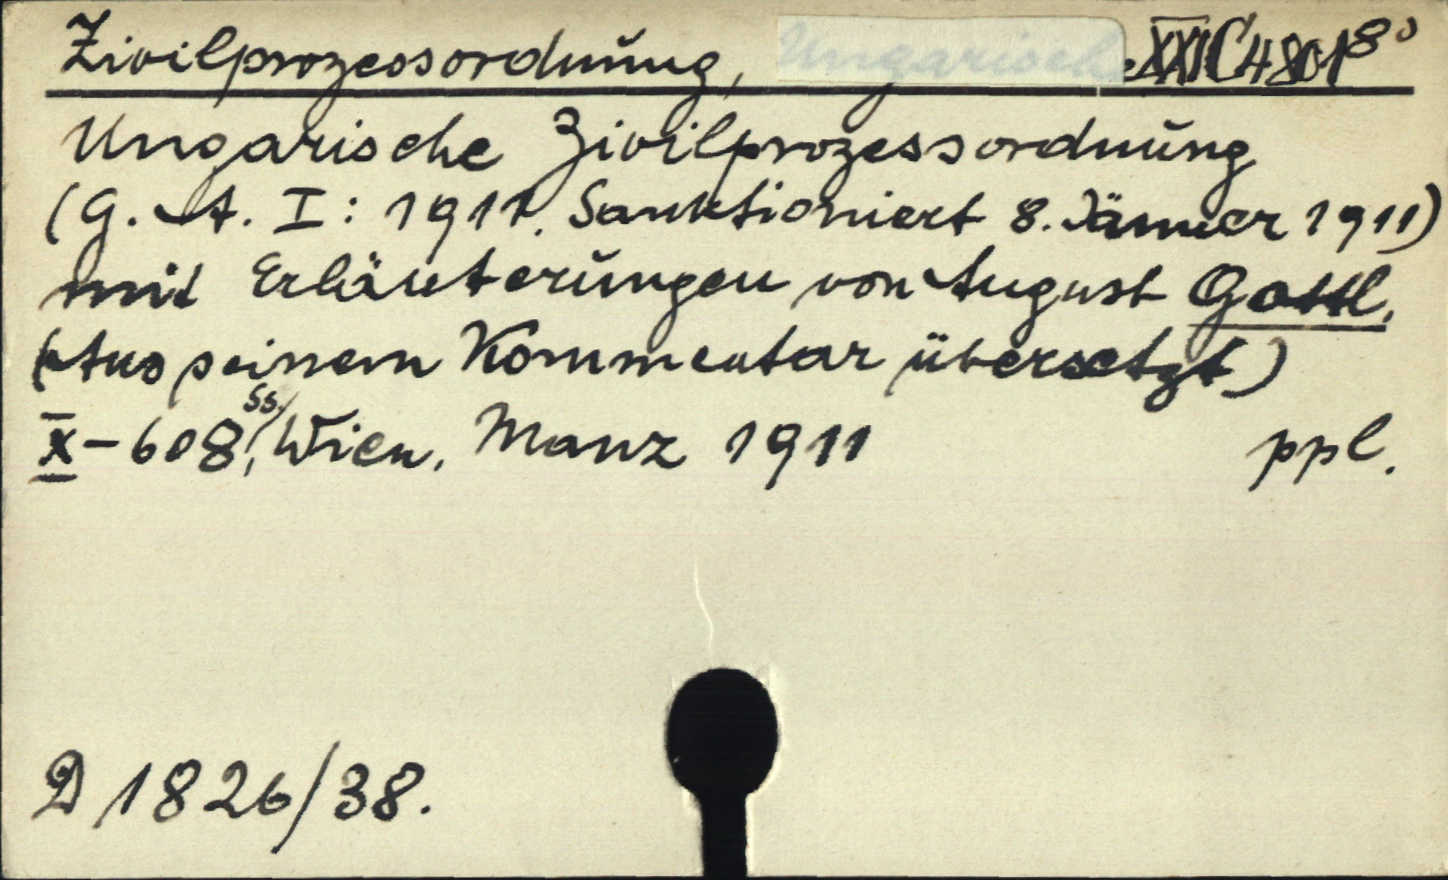 Zivilprozessordnung, Ungarische XXIC 4801 8°
Ungarische Zivilprozessordnung
(G. A. I: 1911. Sanktioniert 8. Jänner 1911)
mit Erläuterungen von August Gottl.
(Aus seinem Kommentar übersetzt)
X-608 SS., Wien, Manz 1911 ppl.
D 1826/38.